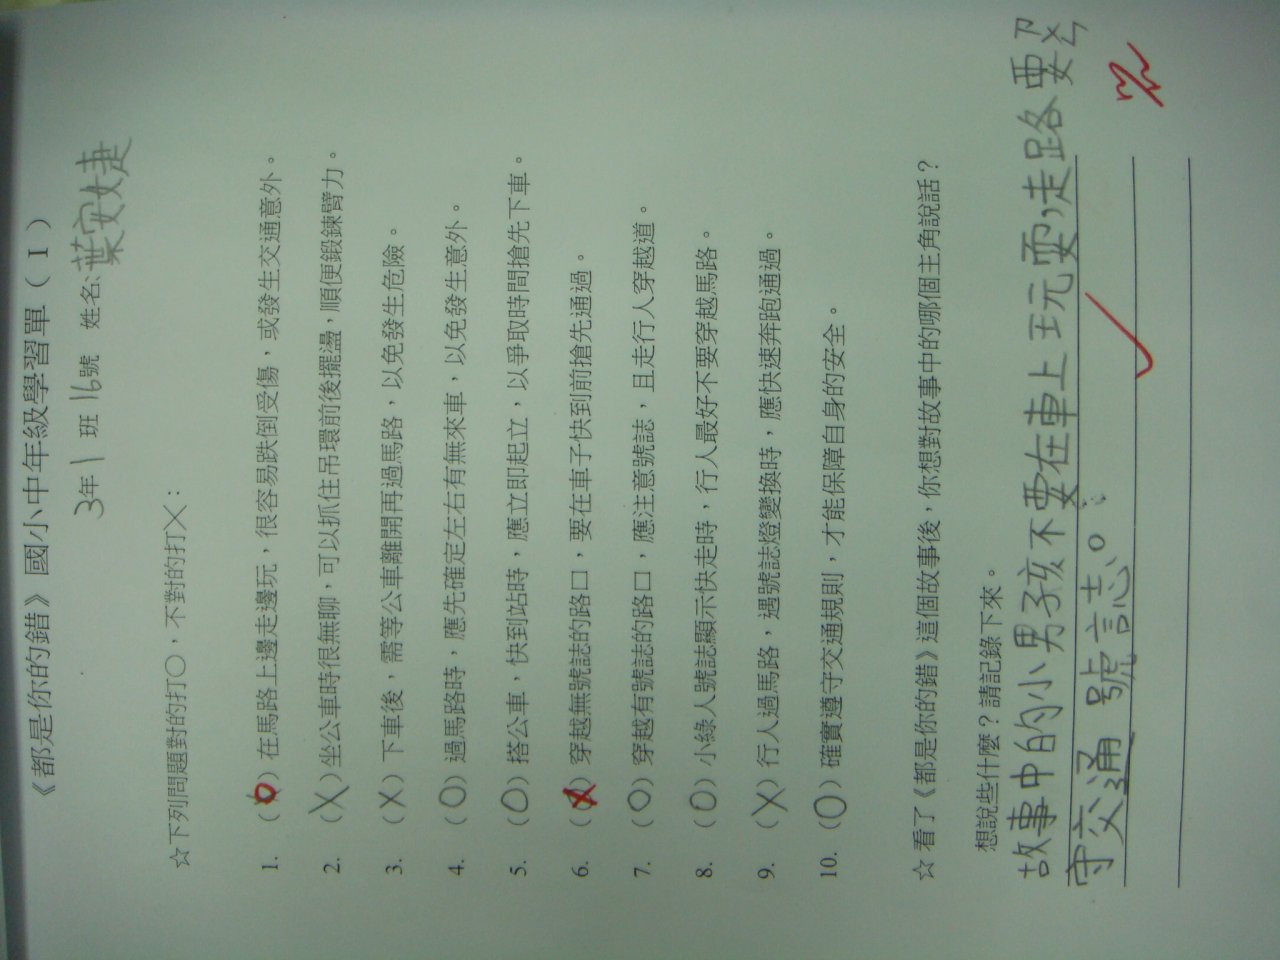 《都是你的錯》國小中年級學習單（I）
3年1班16號 姓名:葉安婕
☆下列問題對的打○，不對的打╳：
1. (O) 在馬路上邊走邊玩，很容易跌倒受傷，或發生交通意外。
2. (X) 坐公車時很無聊，可以抓住吊環前後擺盪，順便鍛鍊臂力。
3. (X) 下車後，需等公車離開再過馬路，以免發生危險。
4. (O) 過馬路時，應先確定左右有無來車，以免發生意外。
5. (O) 搭公車，快到站時，應立即起立，以爭取時間搶先下車。
6. (X) 穿越無號誌的路口，要在車子快到前搶先通過。
7. (O) 穿越有號誌的路口，應注意號誌，且走行人穿越道。
8. (O) 小綠人號誌顯示快走時，行人最好不要穿越馬路。
9. (X) 行人過馬路，遇號誌燈變換時，應快速奔跑通過。
10. (O) 確實遵守交通規則，才能保障自身的安全。
☆ 看了《都是你的錯》這個故事後，你想對故事中的哪個主角說話？
想說些什麼？請記錄下來。
故事中的小男孩不要在車上玩耍，走路要ㄗㄨㄣ
守交通號誌。